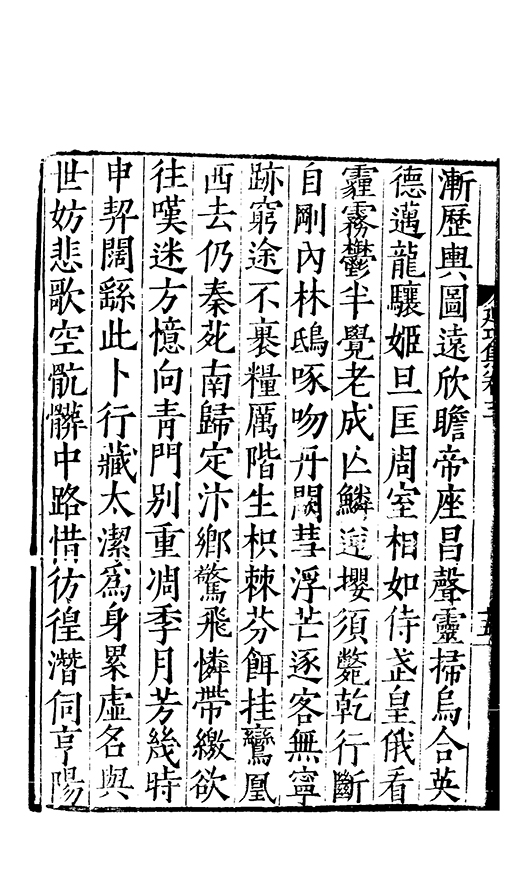 漸歷輿圖遠欣瞻帝座昌聲靈掃烏合英
德邁龍驤姬旦匡周室相如侍武皇俄看
霾霧鬱半覺老成亾鱗逆攖須斃乾行斷
自剛內林鴟啄吻丹闕彗浮芒逐客無寧
跡窮途不裹糧厲階生枳棘芬餌挂鸞凰
西去仍秦苑南歸定汴鄉驚飛憐帶繳欲
往嘆迷方憶向青門別重凋季月芳幾時
申契闊繇此卜行藏太潔爲身累虛名與
世妨悲歌空骯髒中路惜彷徨潛伺亨陽